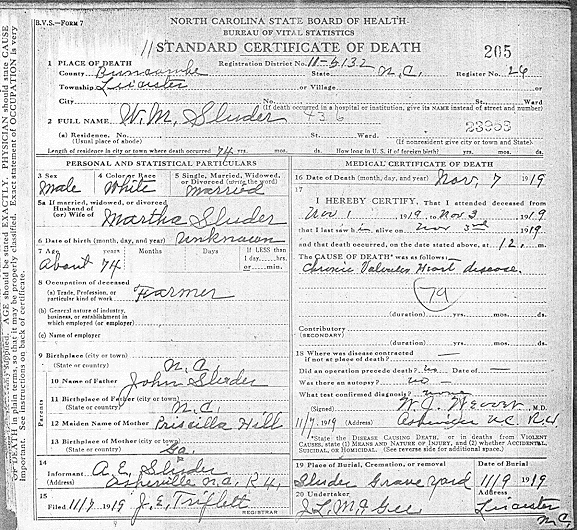 B.V.S.—FORM 7
NORTH CAROLINA STATE BOARD OF HEALTH
BUREAU OF VITAL STATISTICS
STANDARD CERTIFICATE OF DEATH
205
1 PLACE OF DEATH
Registration District No. 11-5132
County Buncombe State N.C. Register No. 26
Township Leicester or Village
City No. St. Ward
(If death occurred in a hospital or institution, give its NAME instead of street and number)
2 FULL NAME W.M. Sluder 436
(a) Residence. No. St. Ward.
(Usual place of abode) (If nonresident give city or town and State)
Length of residence in city or town where death occurred 74 yrs. mos. ds. How long in U.S. if of foreign birth? yrs. mos. ds.
PERSONAL AND STATISTICAL PARTICULARS
3 Sex Male
4 Color or Race White
5 Single, Married, Widowed, or Divorced (write the word) married
5a If married, widowed, or divorced
Husband of
(or) Wife of Martha Sluder
6 Date of birth (month, day, and year) Unknown
7 Age Months Days If LESS than
1 day, hrs.
or min.
About 74
8 Occupation of deceased
(a) Trade, Profession, or particular kind of work Farmer
(b) General nature of industry, business, or establishment in which employed (or employer)
(c) Name of employer
9 Birthplace (city or town)
(State or country) N.C.
10 Name of Father John Sluder
11 Birthplace of Father (city or town)
(State or country) N.C.
12 Maiden Name of Mother Priscilla Hill
13 Birthplace of Mother (city or town)
(State or country) Ga.
Parents
14
Informant A.E. Sluder
(Address) Asheville N.C. R4
15
Filed 11/7 1919 J.E. Triplett
REGISTRAR
MEDICAL CERTIFICATE OF DEATH
16 Date of Death (month, day, and year) Nov, 7 1919
17
I HEREBY CERTIFY, That I attended deceased from
Nov 1 1919, to Nov 3 1919
that I last saw h alive on Nov 3rd 1919
and that death occurred, on the date stated above, at 12, m.
The CAUSE OF DEATH* was as follows:
Chronic Valvular Heart disease.
79
(duration) yrs. mos. ds.
Contributory
(SECONDARY)
(duration) yrs. mos. ds.
18 Where was disease contracted
if not at place of death?
Did an operation precede death? no Date of
Was there an autopsy? no
What test confirmed diagnosis? none
(Signed) W.J. Weaver, M.D.
11/7, 1919 (Address) Asheville N.C. R4
*State the DISEASE CAUSING DEATH, or in deaths from VIOLENT CAUSES, state (1) MEANS AND NATURE OF INJURY, and (2) whether ACCIDENTAL, SUICIDAL, OR HOMICIDAL. (See reverse side for additional space.)
19 Place of Burial, Cremation, or removal Date of Burial
Sluder Grave yard 11/9 1919
20 Undertaker Address
Leicester
N.C.
AGE should be stated EXACTLY. PHYSICIAN should state CAUSE
OF DEATH in plain terms, so that it may be properly classified. Exact statement of OCCUPATION is very
important. See instructions on back of certificate.